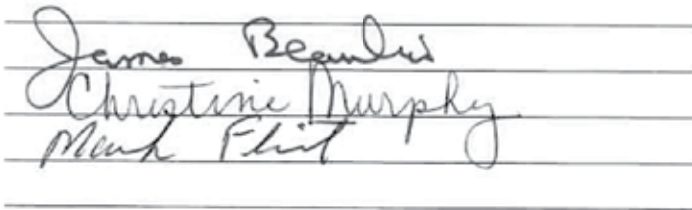 James Beaulieu
Christine Murphy
Mark Flint